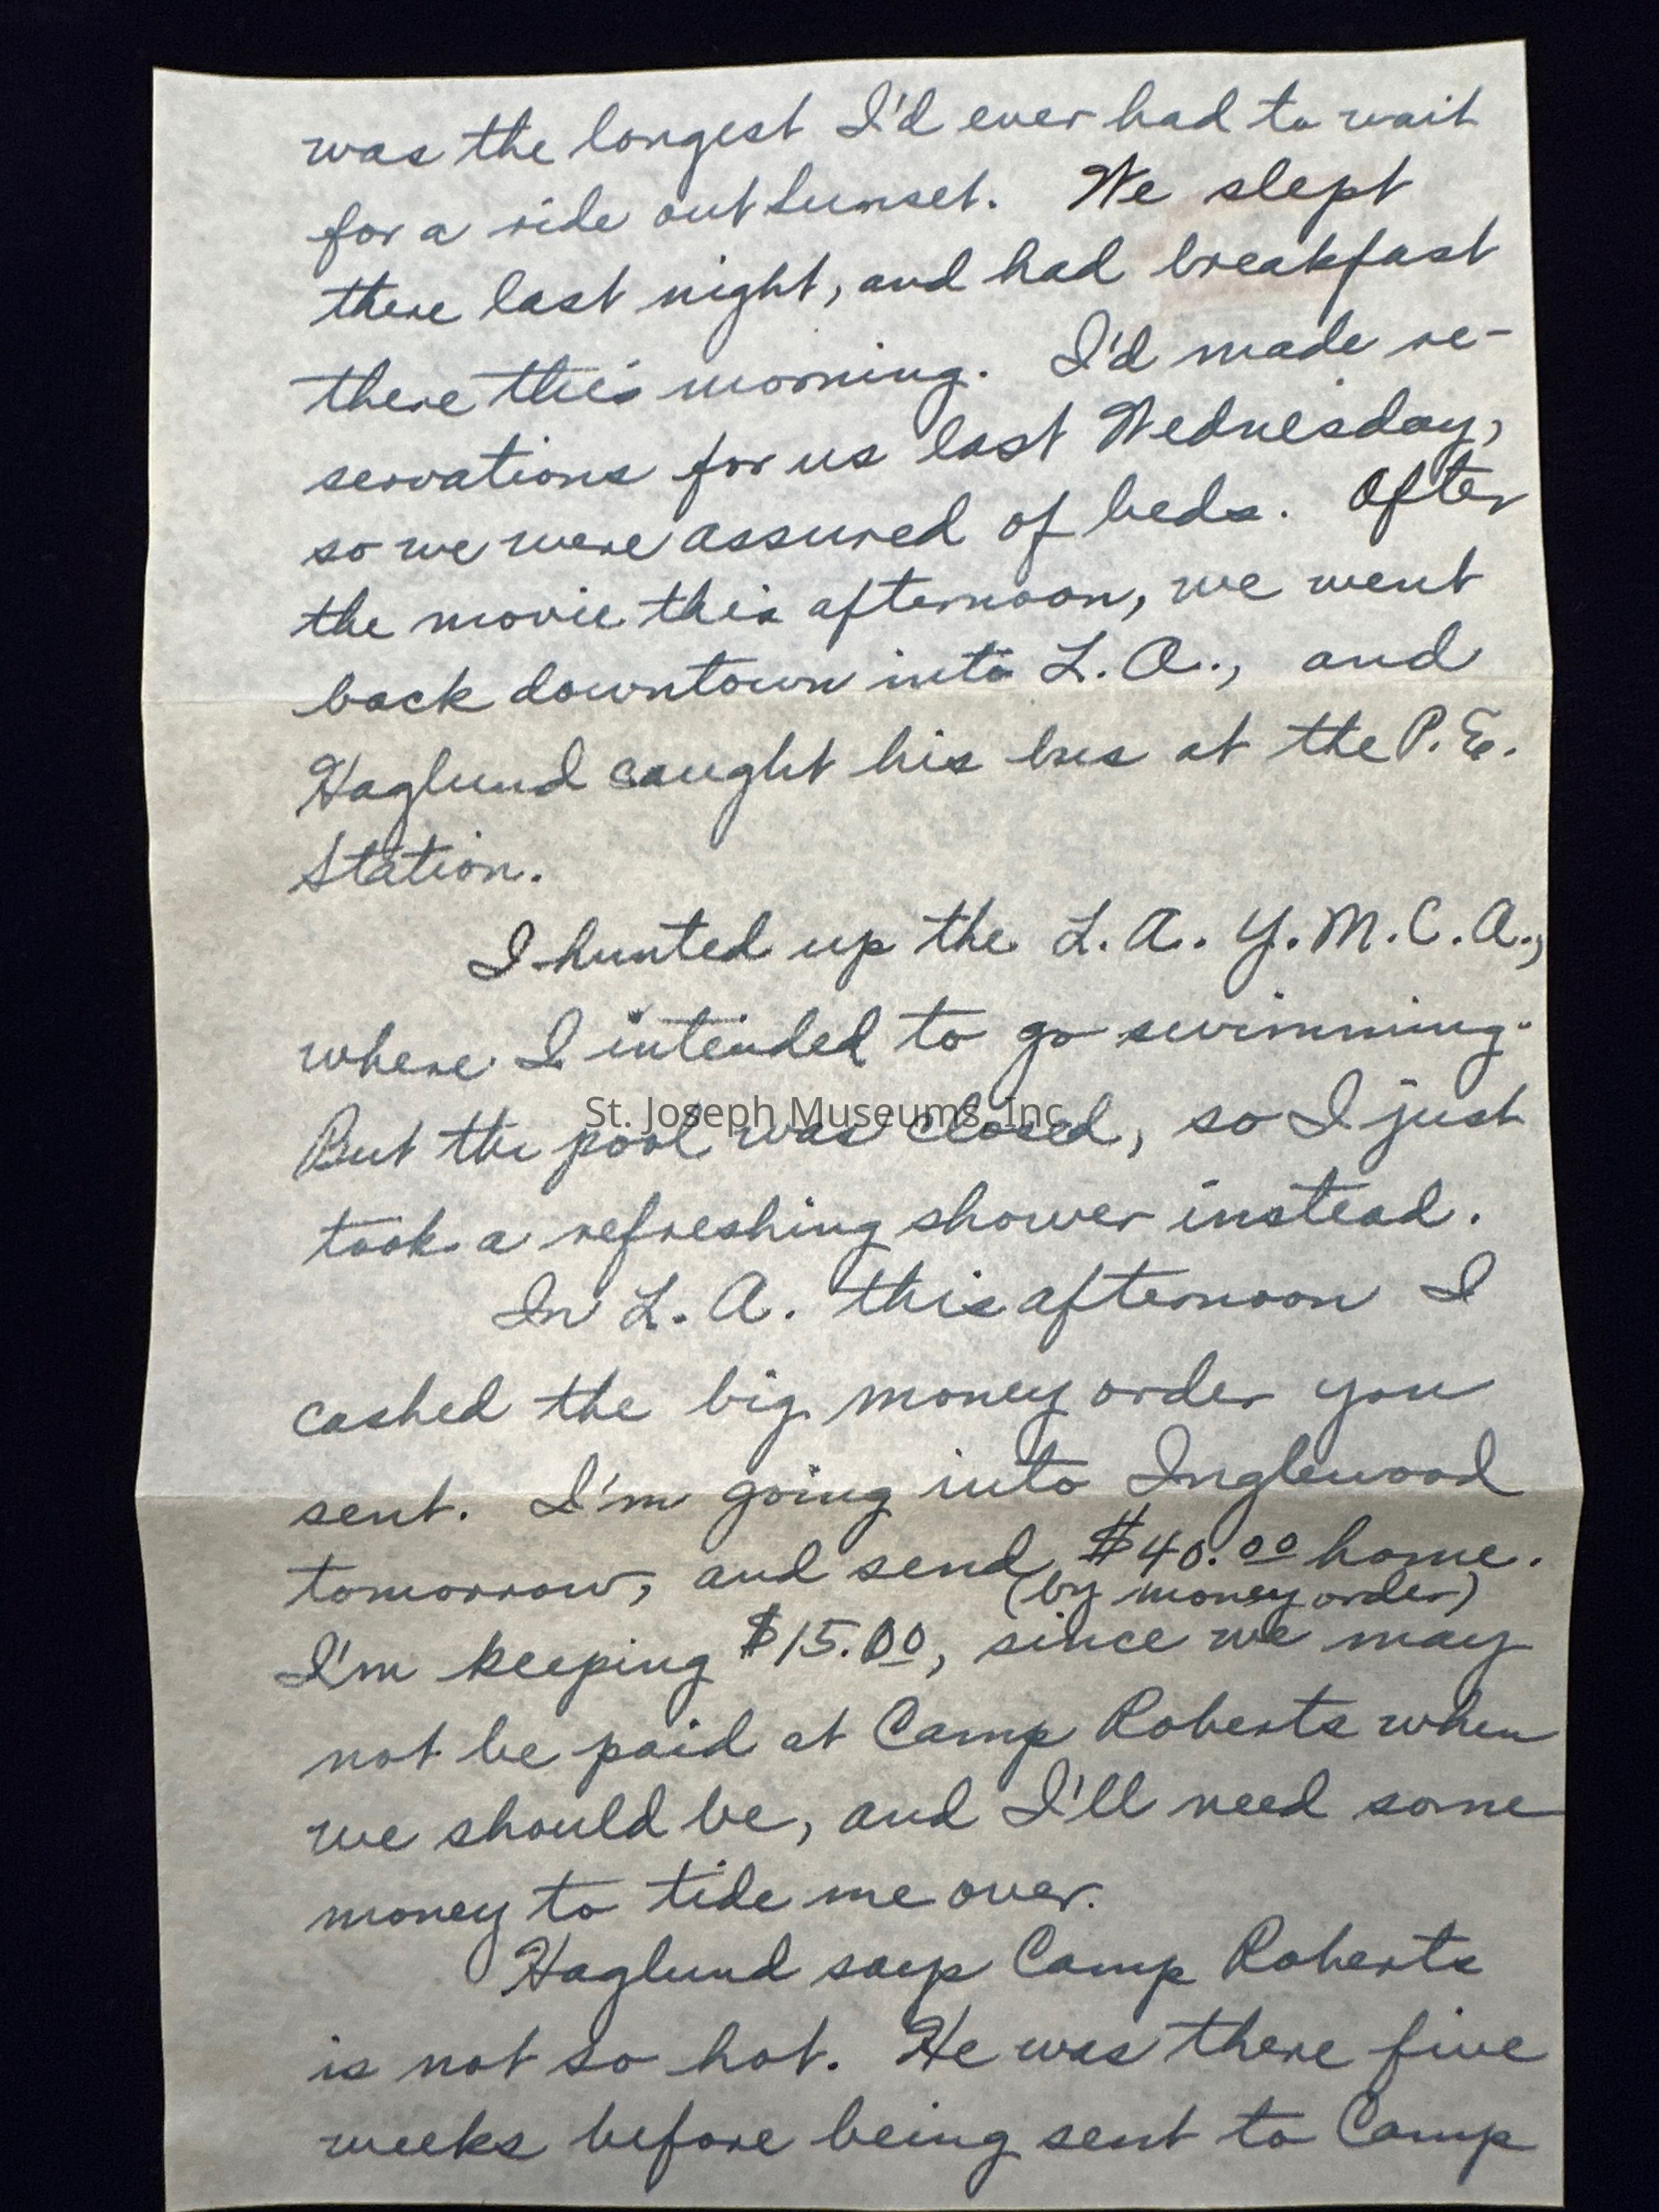 was the longest I'd ever had to wait
for a ride out Sunset. We slept
there last night, and had breakfast
there this morning. I'd made re-
servations for us last Wednesday,
so we were assured of beds. After
the movie this afternoon, we went
back downtown into L.A., and
Haglund caught his bus at the P.E.
Station.
I hunted up the L.A. Y.M.C.A.,
where I intended to go swimming.
St. Joseph Museums, Inc.
But the pool was closed, so I just
took a refreshing shower instead.
In L.A. this afternoon I
cashed the big money order you
sent. I'm going into Inglewood
tomorrow, and send $40.00 home.
(by money order)
I'm keeping $15.00, since we may
not be paid at Camp Roberts when
we should be, and I'll need some
money to tide me over.
Haglund says Camp Roberts
is not so hot. He was there five
weeks before being sent to Camp